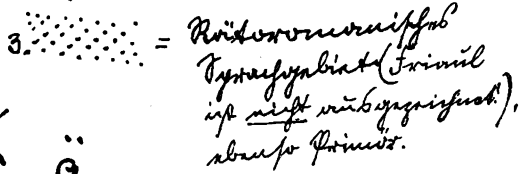 3. = Rätoromanisches
Sprachgebiet (Friaul
ist nicht ausgezeichnet!),
ebenso Primör.